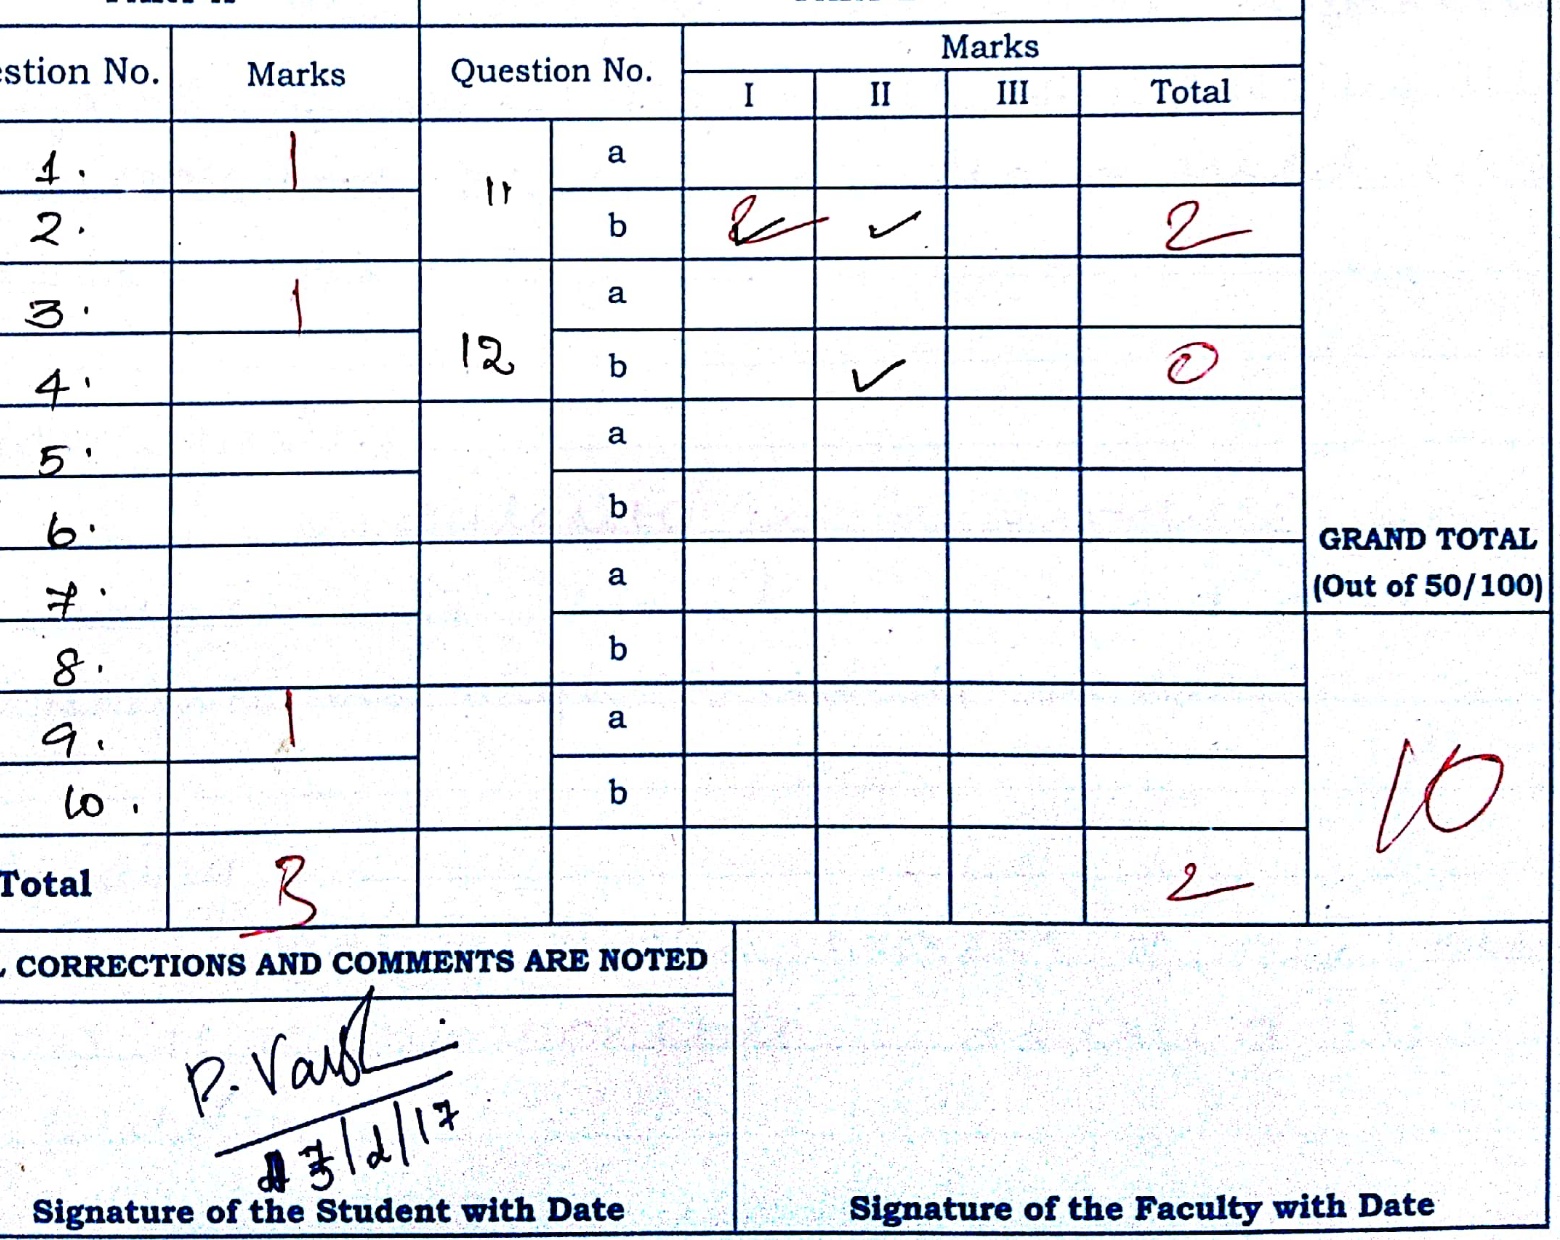 Question No. Marks Question No. Marks
I II III Total
1. 1 11 a
2. b 2 ✓ ✓ 2
3. 1 12 a
4. b ✓ 0
5. a
6. b
7. a
8. b
9. 1 a
10. b
GRAND TOTAL
(Out of 50/100)
10
Total 3 2
CORRECTIONS AND COMMENTS ARE NOTED
/2/17
Signature of the Student with Date Signature of the Faculty with Date